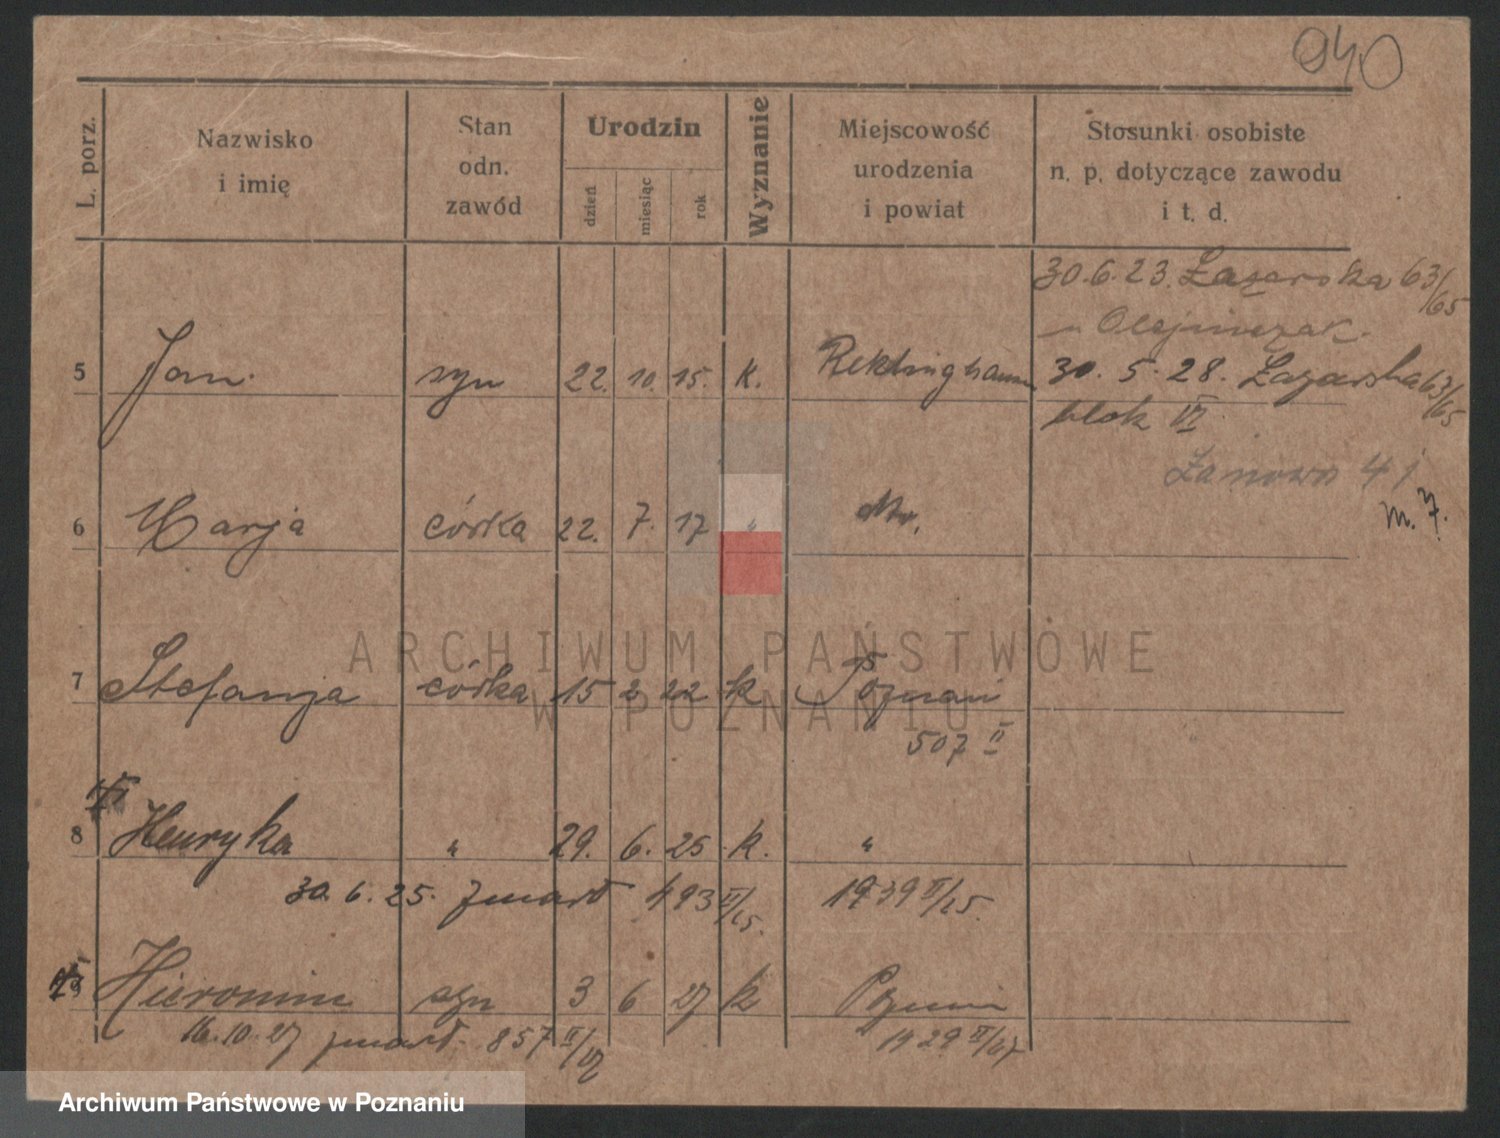 940
L. porz.
Nazwisko
i imię
Stan
odn.
zawód
Urodzin
dzień
miesiąc
rok
Wyznanie
Miejscowość
urodzenia
i powiat
Stosunki osobiste
n. p. dotyczące zawodu
i t. d.
30.6.23. Łazarska 63/65
u Olejniczak.
5 Jan. syn 22. 10. 15. k. 30. 5. 28. Łazarska 63/65
blok VI
Łanowa 41
m. 7.
6 Marja córka 22. 7. 17 "
ARCHIWUM PAŃSTWOWE
W POZNANIU
7 Stefanja córka 15 2 22 k Poznań
507 II
8 Henryka " 29. 6. 25 k. "
30. 6. 25. zmarł 493 II/25. 1939 II/25.
Hieronim syn 3 6 27 k Poznań
16.10.27 zmarł 857
Archiwum Państwowe w Poznaniu